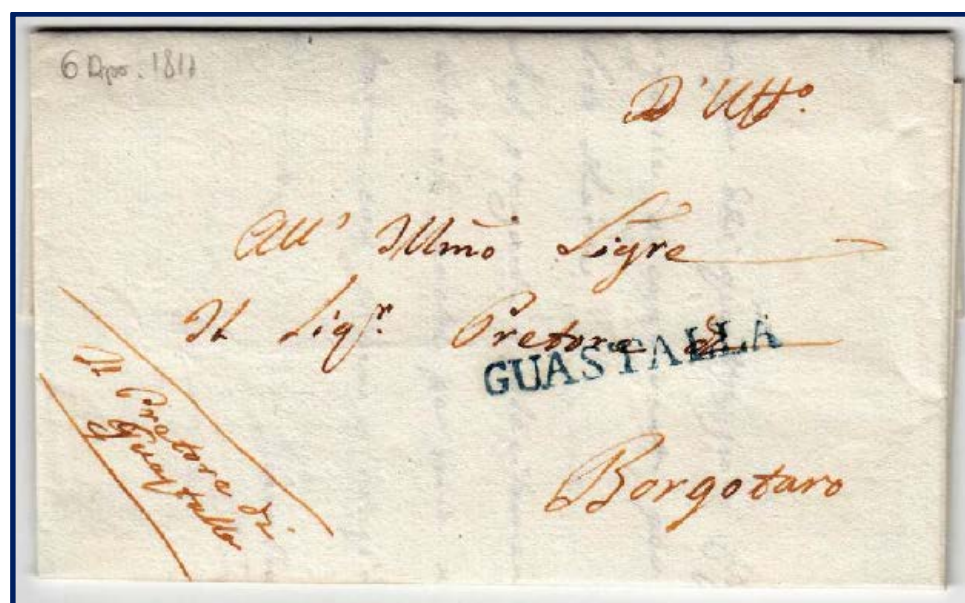 6 1811
D'Uffº.
All' Illmõ Sigre
Il Sigʳ. Pretore di
GUASTALLA
Borgotaro
Il Pretore di
Guastalla